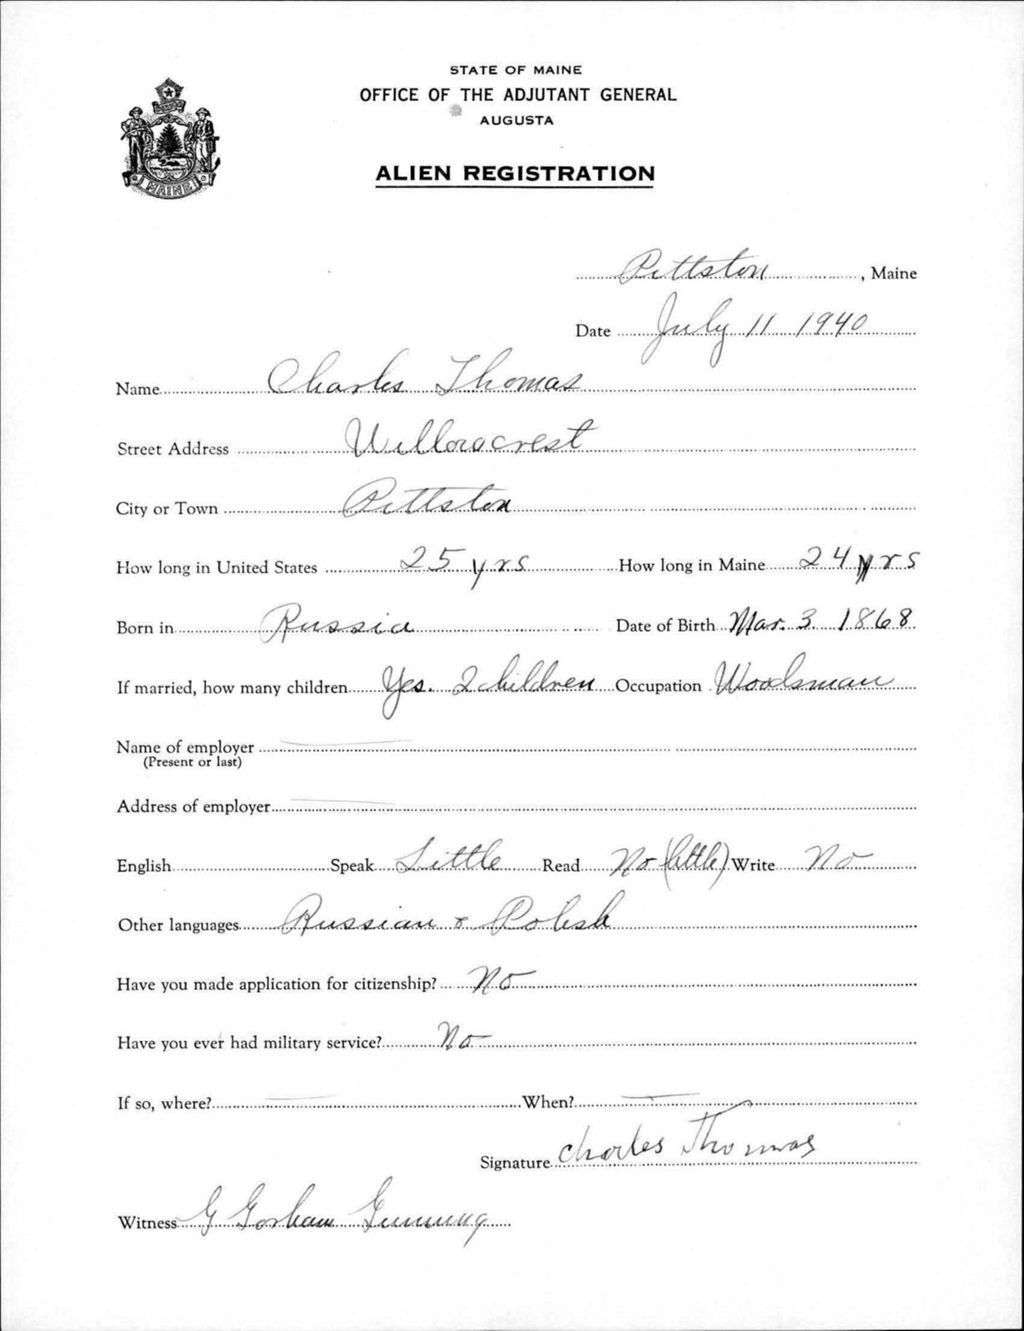 STATE OF MAINE
OFFICE OF THE ADJUTANT GENERAL
AUGUSTA
ALIEN REGISTRATION
MAINE
Pittston, Maine
Date July 11 1940
Name Charles Thomas
Street Address Willowcrest
City or Town Pittston
How long in United States 25 yrs How long in Maine 24 yrs
Born in Russia Date of Birth Mar. 3. 1868
If married, how many children Yes. 2 children Occupation Woodsman
Name of employer
(Present or last)
Address of employer
English Speak Little Read No (little) Write No
Other languages Russian & Polish
Have you made application for citizenship? No
Have you ever had military service? No
If so, where? When?
Signature Charles Thomas
Witness G Gorham